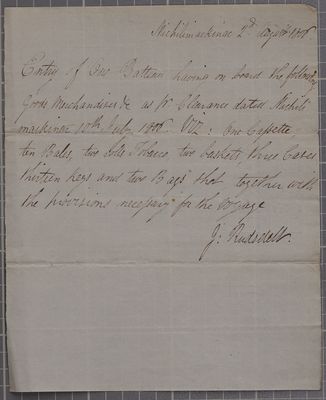 Michilimackinac 2d August 1806
Entry of One Batteau having on board the following
Goods Merchandise &c as pr Clearance dated Michili
mackinac 10th July 1806. Viz: One Cassette
ten Bales, two Rolls Tobacco two baskets three Cases
thirteen Kegs and two Bags Shot together with
the provisions necessary for the Voyage
J: Rudsdell.